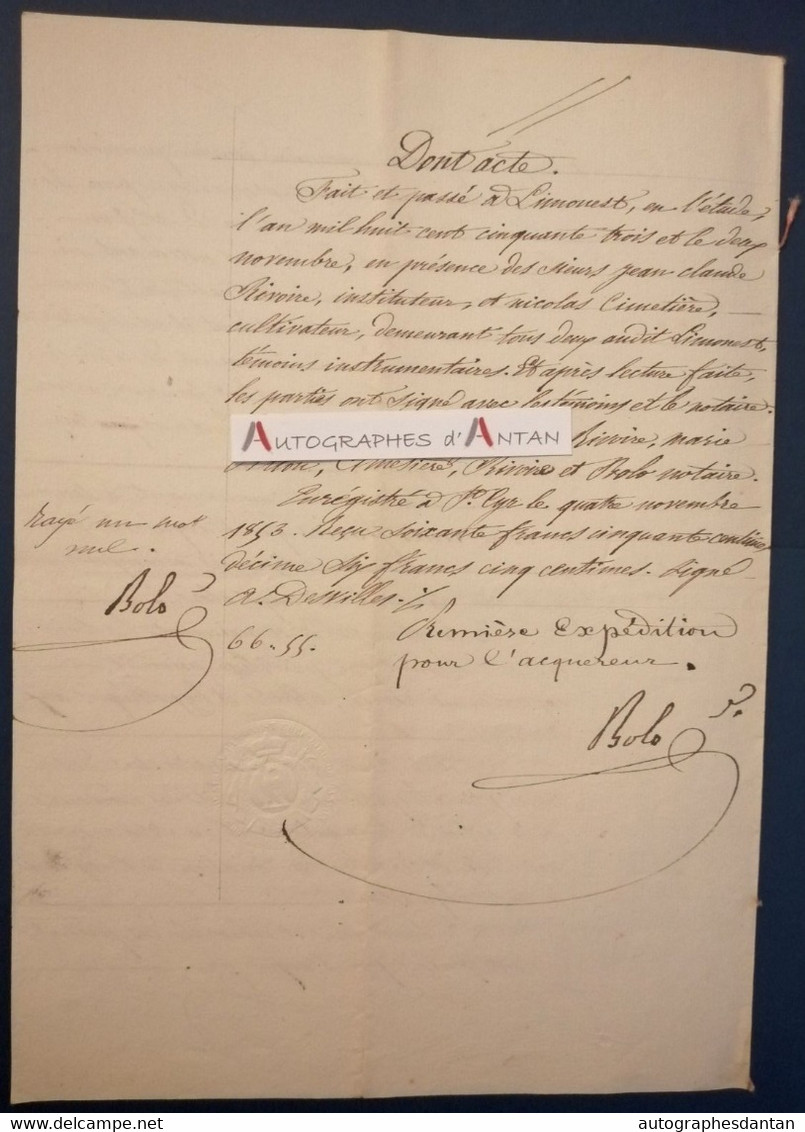 Dont acte.
Fait et passé à Limonest, en l'étude,
l'an mil huit cent cinquante trois et le deux
novembre, en présence des sieurs Jean Claude
Rivoire, instituteur, et nicolas Cimetière,
cultivateur, demeurant tous deux audit Limonest,
témoins instrumentaires. Et après lecture faite,
les parties ont signé avec les témoins et le notaire.
AUTOGRAPHES d'ANTAN
Rivoire, marie
Cimetière, Rivoire et Bolo notaire.
Enregistré à St. Cyr le quatre novembre
1853. Reçu soixante francs cinquante centimes
décime six francs cinq centimes. Signé
A. Desvilles.
66.55.
Rayé un mot
nul.
Bolo
Première Expédition
pour l'acquereur.
Bolo
delcampe.net
autographesdantan